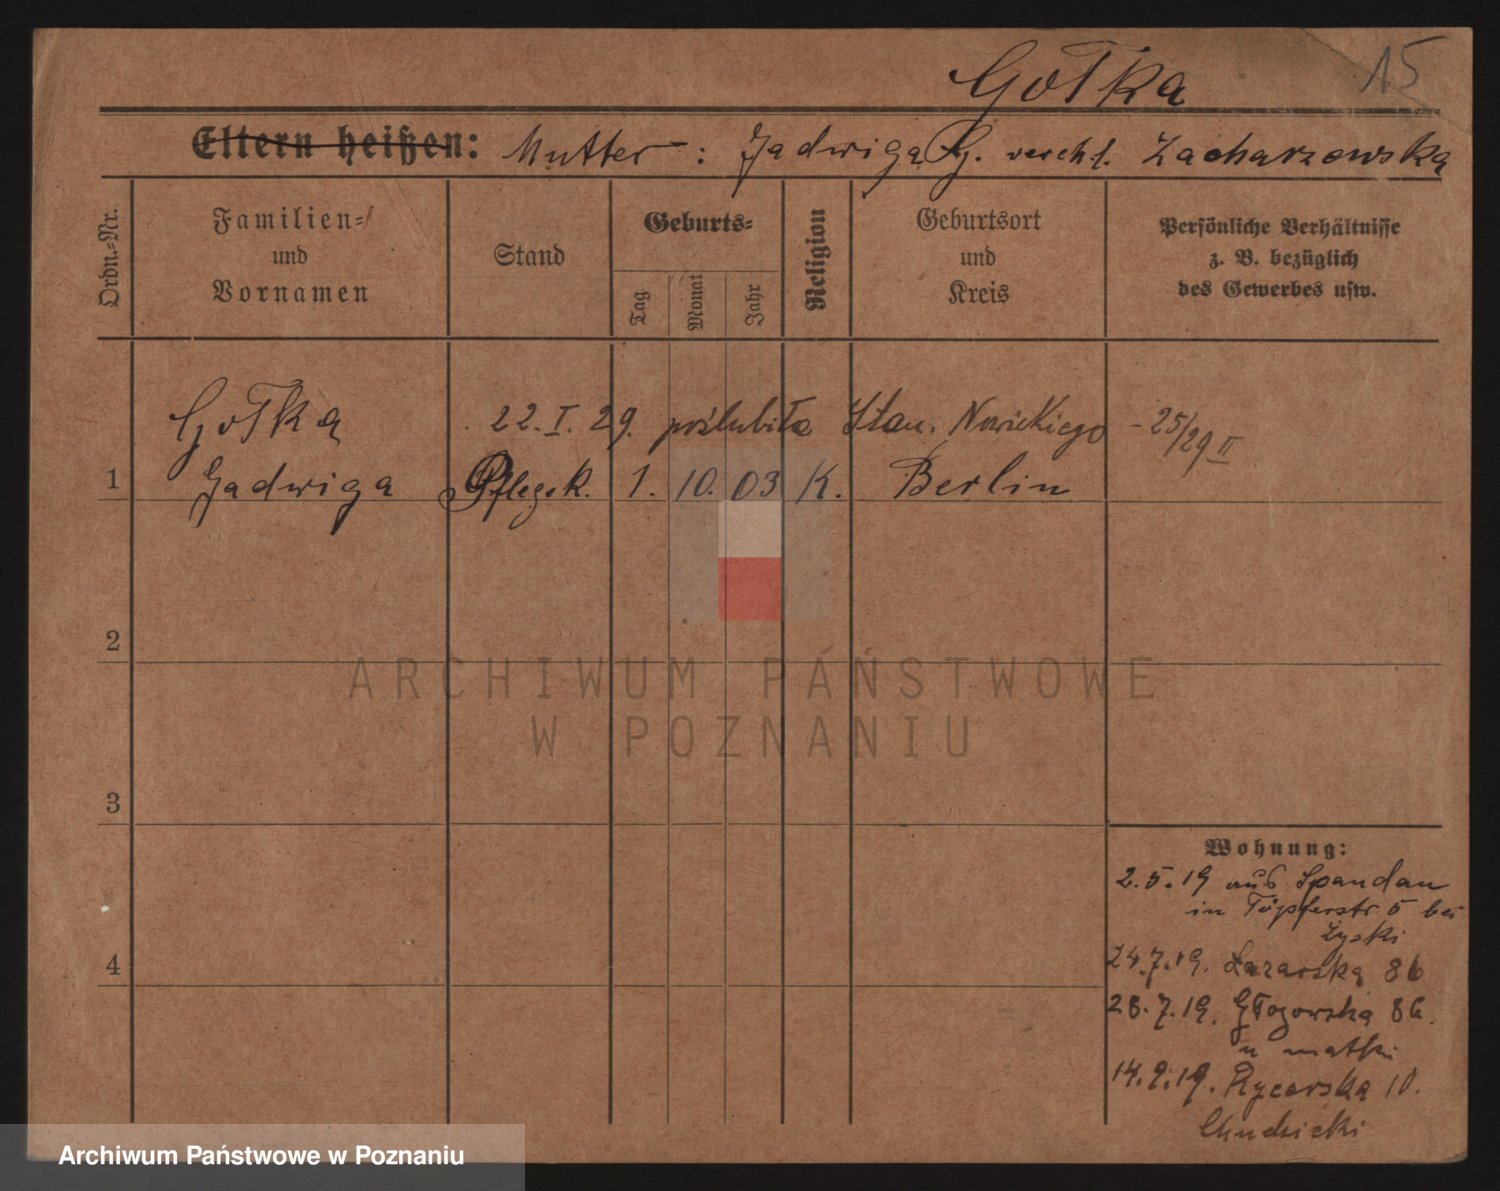 Gołka
15
Eltern heißen: Mutter: Jadwiga G. verehl. Zacharzewska
Ordn.-Nr.
Familien-
und
Vornamen
Stand
Geburts-
Tag
Monat
Jahr
Religion
Geburtsort
und
Kreis
Persönliche Verhältnisse
z. B. bezüglich
des Gewerbes usw.
Gołka 22.I.29. poślubiła Stan. Nowickiego - 25/29 II
1 Jadwiga Pflegek. 1. 10. 03 K. Berlin
2
ARCHIWUM PAŃSTWOWE
W POZNANIU
3
Wohnung:
2.5.19 aus Spandau
in Töpferstr 5 bei
Zyski
4
24.7.19. Łazarska 86
28.7.19. Głogowska 86.
u matki
14.9.19. Rycerska 10.
Chudzicki
Archiwum Państwowe w Poznaniu